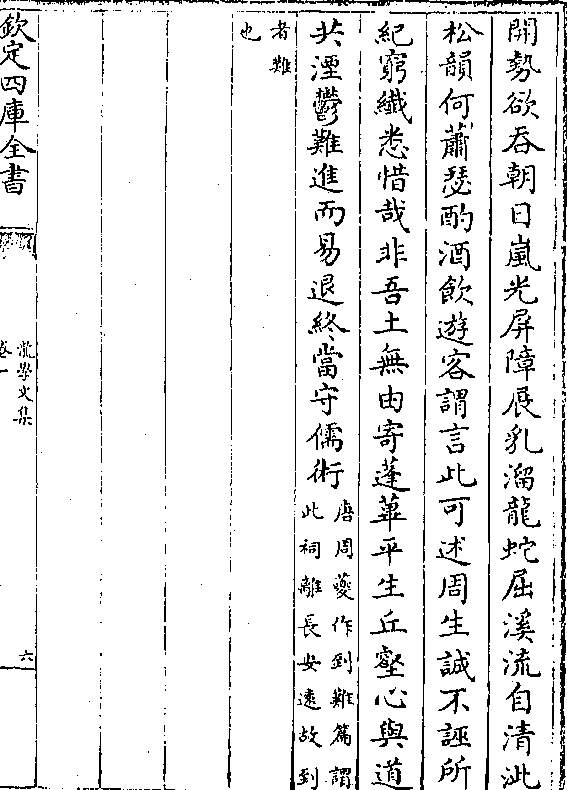 開勢欲吞朝日嵐光屏障展乳溜龍蛇屈溪流自清泚
松韻何蕭瑟酌酒飲遊客謂言此可述周生誠不誣所
紀窮纖悉惜哉非吾土無由寄蓬蓽平生丘壑心與道
共湮鬱難進而易退終當守儒術
唐周夔作到難篇謂
此祠離長安遠故到
者難
也
欽定四庫全書
龍學文集
卷一
六